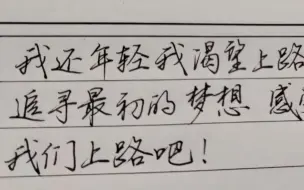 我还年轻我渴望上路
追寻最初的梦想 感
我们上路吧！